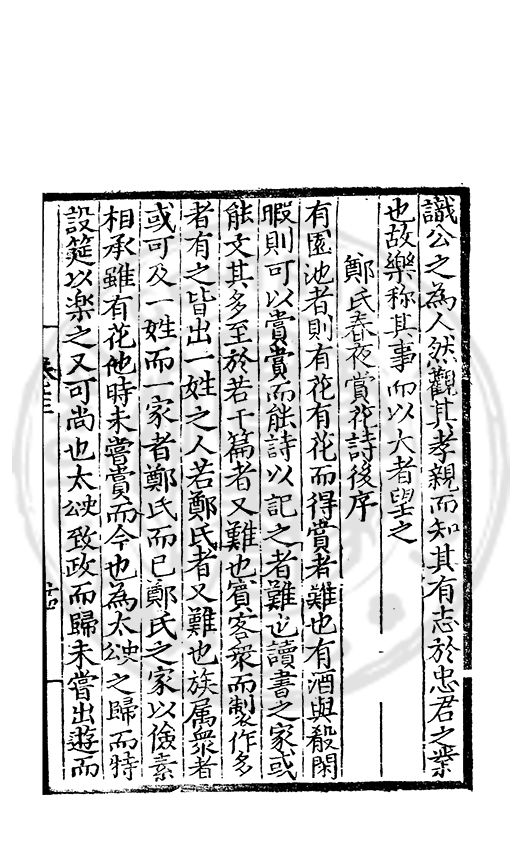 識公之為人然觀其孝親而知其有志於忠君之業
也故樂称其事而以大者望之
鄭氏春夜賞花詩後序
有園池者則有花有花而得賞者難也有酒與殽閑
暇則可以賞賞而能詩以記之者難也讀書之家或
能文其多至於若干篇者又難也賓客衆而製作多
者有之皆出一姓之人若鄭氏者又難也族属衆者
或可及一姓而一家者鄭氏而已鄭氏之家以儉素
相承雖有花他時未嘗賞而今也為太之歸而特
設筵以樂之又可尚也太致政而歸未嘗出遊而